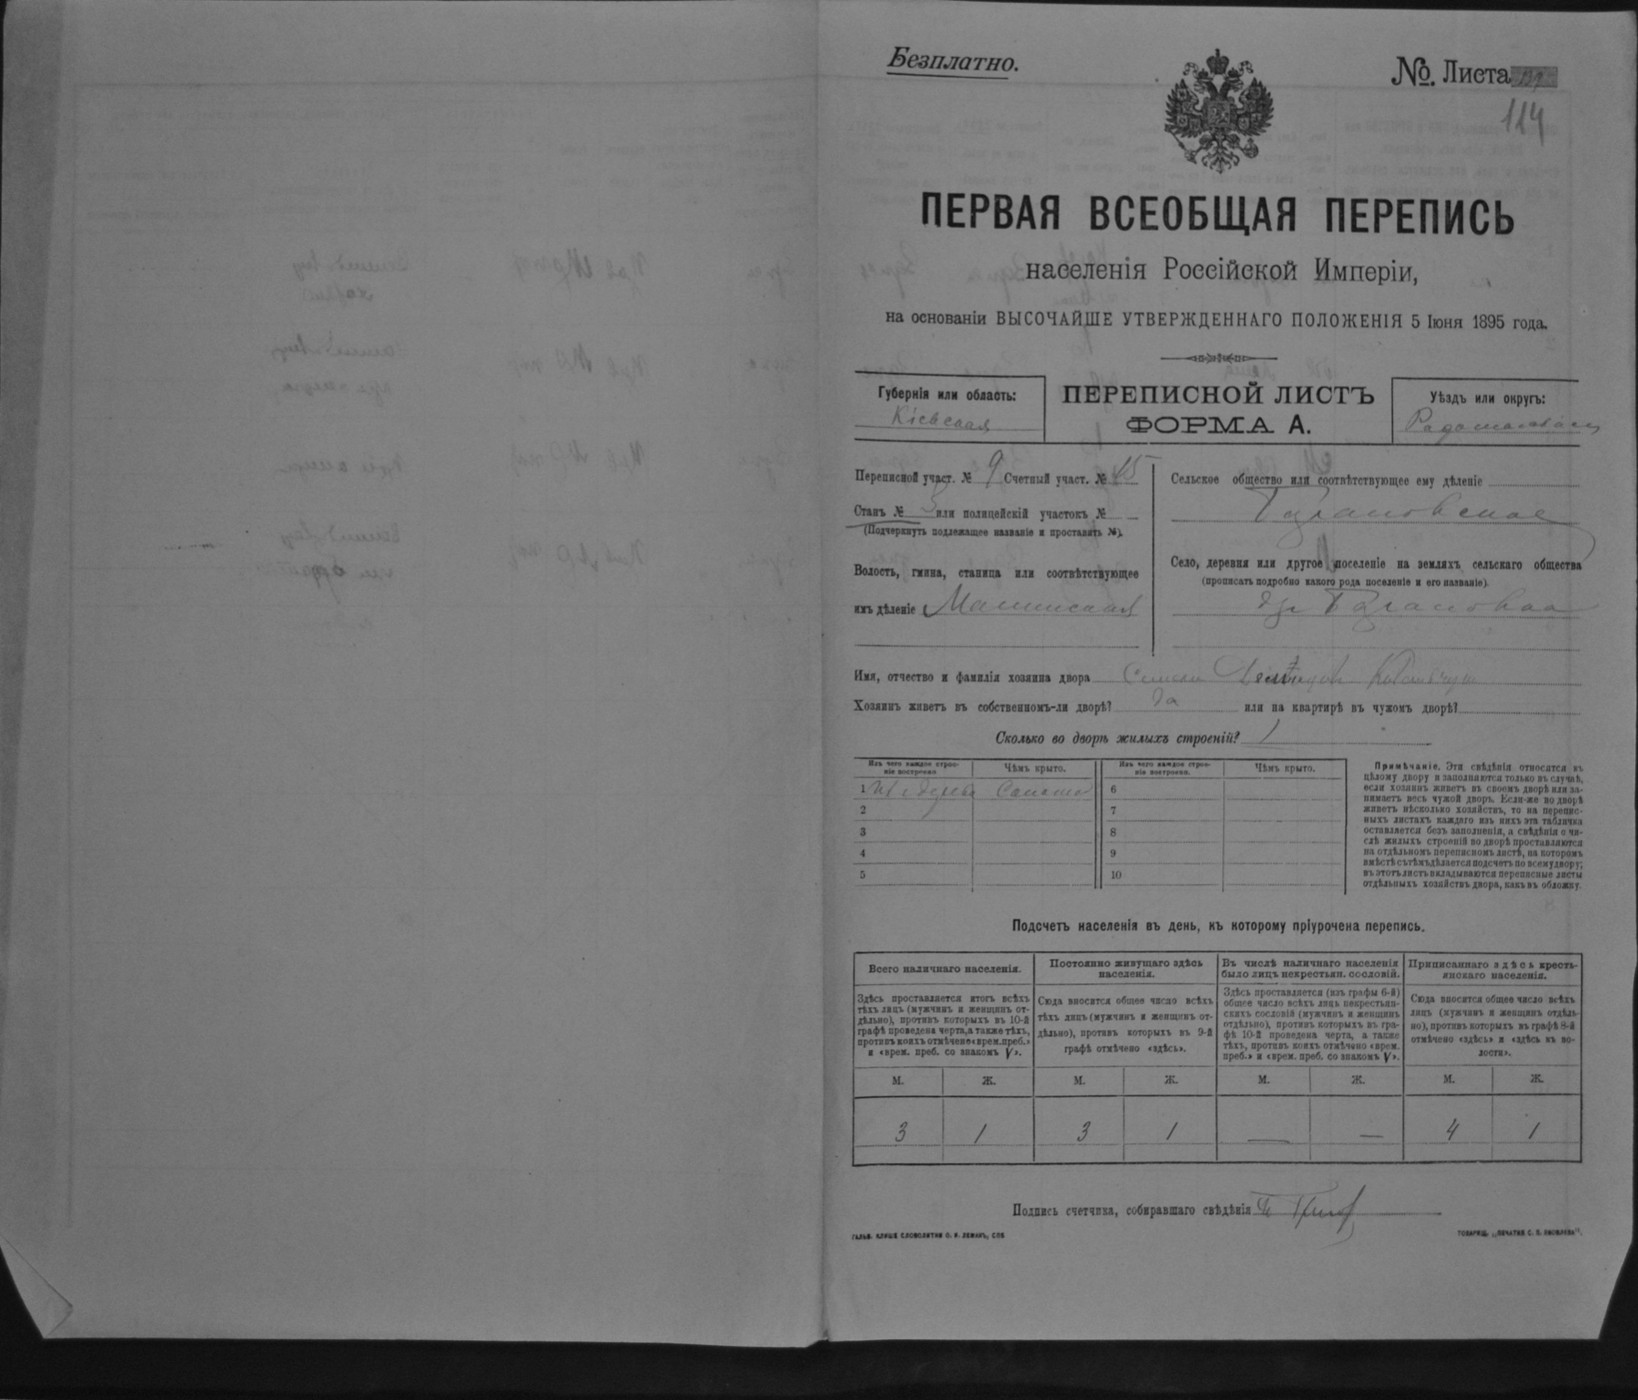 Безплатно.
№. Листа
114
ПЕРВАЯ ВСЕОБЩАЯ ПЕРЕПИСЬ
населенія Россійской Имперіи,
на основаніи ВЫСОЧАЙШЕ УТВЕРЖДЕННАГО ПОЛОЖЕНІЯ 5 Іюня 1895 года.
Губернія или область:
Кіевская
ПЕРЕПИСНОЙ ЛИСТЪ
ФОРМА А.
Уѣздъ или округъ:
Переписной участ. № 9 Счетный участ. № 45
Станъ № 3 или полицейскій участокъ № —
(Подчеркнуть подлежащее названіе и проставить №).
Волость, гмина, станица или соотвѣтствующее
имъ дѣленіе
Сельское общество или соотвѣтствующее ему дѣленіе
Село, деревня или другое поселеніе на земляхъ сельскаго общества
(прописать подробно какого рода поселеніе и его названіе).
Имя, отчество и фамилія хозяина двора
Хозяинъ живетъ въ собственномъ-ли дворѣ? Да или на квартирѣ въ чужомъ дворѣ?
Сколько во дворѣ жилыхъ строеній? 1
Изъ чего каждое строеніе построено.
Чѣмъ крыто.
Изъ чего каждое строеніе построено.
Чѣмъ крыто.
1 Изъ дерева Соломою
2
3
4
5
6
7
8
9
10
Примѣчаніе. Эти свѣдѣнія относятся къ
цѣлому двору и заполняются только въ случаѣ,
если хозяинъ живетъ въ своемъ дворѣ или за-
нимаетъ весь чужой дворъ. Если-же во дворѣ
живетъ нѣсколько хозяйствъ, то на перепис-
ныхъ листахъ каждаго изъ нихъ эта табличка
оставляется безъ заполненія, а свѣдѣнія о чи-
слѣ жилыхъ строеній во дворѣ проставляются
на отдѣльномъ переписномъ листѣ, на которомъ
вмѣстѣ съ тѣмъ дѣлается подсчетъ по всему двору;
въ этотъ листъ вкладываются переписные листы
отдѣльныхъ хозяйствъ двора, какъ въ обложку.
Подсчетъ населенія въ день, къ которому пріурочена перепись.
Всего наличнаго населенія.
Здѣсь проставляется итогъ всѣхъ
тѣхъ лицъ (мужчинъ и женщинъ от-
дѣльно), противъ которыхъ въ 10-й
графѣ проведена черта, а также тѣхъ,
противъ коихъ отмѣчено «врем. преб.»
и «врем. преб. со знакомъ V».
Постоянно живущаго здѣсь
населенія.
Сюда вносится общее число всѣхъ
тѣхъ лицъ (мужчинъ и женщинъ от-
дѣльно), противъ которыхъ въ 9-й
графѣ отмѣчено «здѣсь».
Въ числѣ наличнаго населенія
было лицъ некрестьян. сословій.
Здѣсь проставляется (изъ графы 6-й)
общее число всѣхъ лицъ некрестьян-
скихъ сословій (мужчинъ и женщинъ
отдѣльно), противъ которыхъ въ гра-
фѣ 10-й проведена черта, а также
тѣхъ, противъ коихъ отмѣчено «врем.
преб.» и «врем. преб. со знакомъ V».
Приписаннаго здѣсь кресть-
янскаго населенія.
Сюда вносится общее число всѣхъ
лицъ (мужчинъ и женщинъ отдѣль-
но), противъ которыхъ въ графѣ 8-й
отмѣчено «здѣсь» и «здѣсь въ во-
лости».
М. Ж. М. Ж. М. Ж. М. Ж.
3 1 3 1 — — 4 1
Подпись счетчика, собиравшаго свѣдѣнія